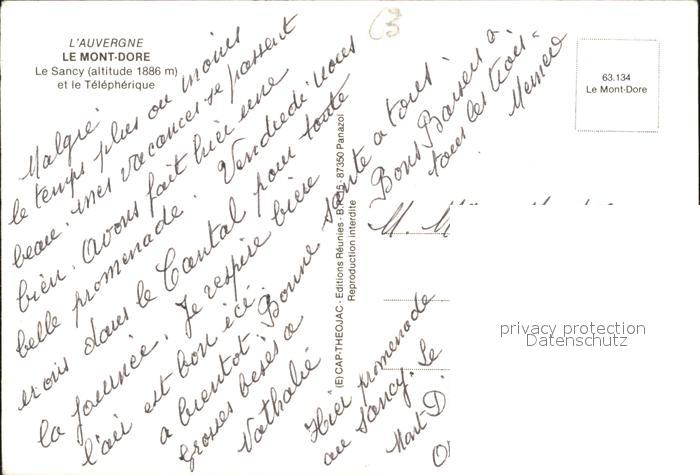 L'AUVERGNE
LE MONT-DORE
Le Sancy (altitude 1886 m)
et le Téléphérique
63
63.134
Le Mont-Dore
Malgré
le temps plus ou moins
beau. mes vacances se passent
bien. Avons fait hier une
belle promenade. Vendredi nous
irons dans le Cantal pour toute
la journée. Je respire bien
l'air est bon ici.
a bientot. Bonne santé a tous.
Grosses bises a
Nathalie
Bons Baisers a
tous les trois.
(E) CAP-THEOJAC - Editions Réunies - B.P. 15 - 87350 Panazol
Reproduction interdite
M. M
Hier promenade
au Sancy. Le
Mont-D
privacy protection
Datenschutz